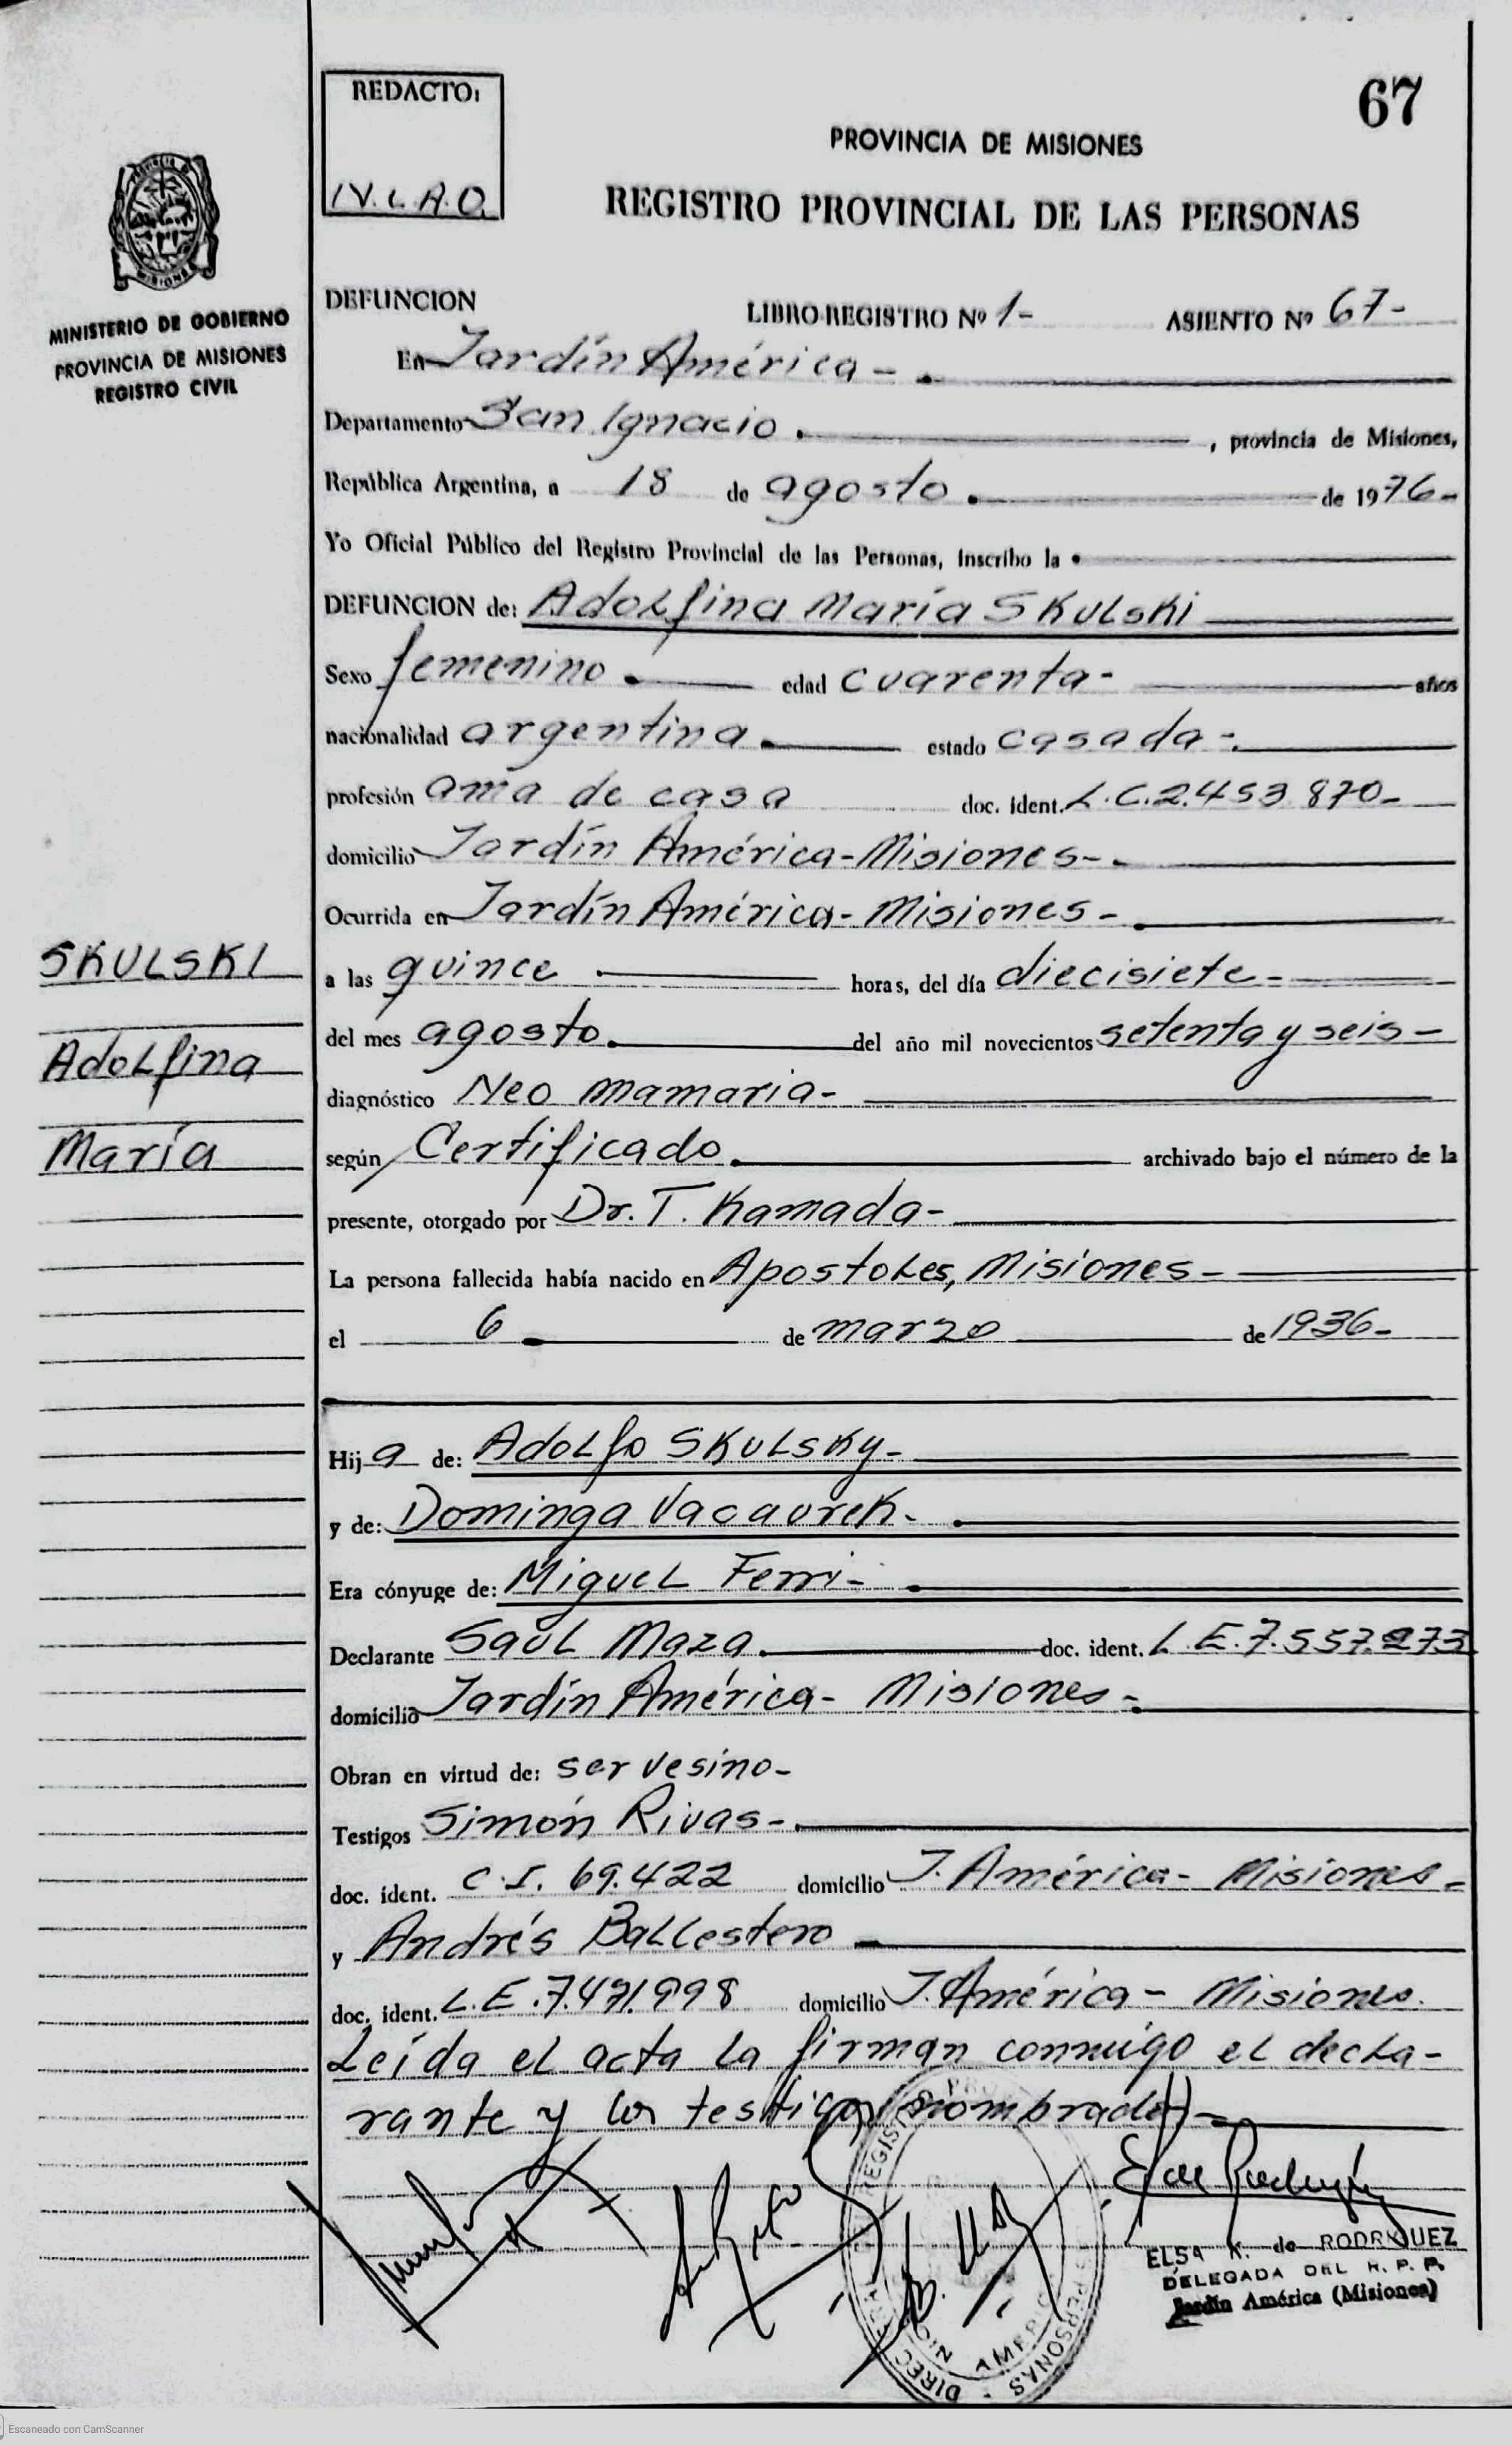 67
REDACTO:
PROVINCIA DE MISIONES
REGISTRO PROVINCIAL DE LAS PERSONAS
MISIONES
MINISTERIO DE GOBIERNO
PROVINCIA DE MISIONES
REGISTRO CIVIL
DEFUNCION LIBRO REGISTRO Nº 1- ASIENTO Nº 67-
En Jardín América -
Departamento San Ignacio. , provincia de Misiones,
República Argentina, a 18 de agosto. de 1976-
Yo Oficial Público del Registro Provincial de las Personas, inscribo la
DEFUNCION de: Adolfina María Skulski
Sexo femenino. edad cuarenta- años
nacionalidad argentina. estado casada-.
profesión ama de casa doc. ident. L.C.2.453.870-
domicilio Jardín América-Misiones-.
Ocurrida en Jardín América- Misiones-.
SKULSKI
Adolfina
María
a las quince horas, del día diecisiete-
del mes agosto. del año mil novecientos setenta y seis-
diagnóstico Neo mamaria-
según Certificado. archivado bajo el número de la
presente, otorgado por Dr. T. Kamada-
La persona fallecida había nacido en Apostoles, Misiones-
el 6 de marzo de 1936-
Hij a de: Adolfo Skulsky-
y de: Dominga Vacaurek-.
Era cónyuge de: Miguel Ferri-
Declarante Saúl Maza. doc. ident. L.E.7.557.273
domicilio Jardín América- Misiones-
Obran en virtud de: ser vesino-
Testigos Simón Rivas-.
doc. ident. C.I. 69.422 domicilio J. América- Misiones-
y Andrés Ballestero
doc. ident. L.E.7.471.998 domicilio J. América- Misiones.
Leída el acta la firman conmigo el decla-
rante y los testigos nombrados-
ELSA K. de RODRIGUEZ
DELEGADA DEL R. P. P.
Jardín América (Misiones)
Escaneado con CamScanner